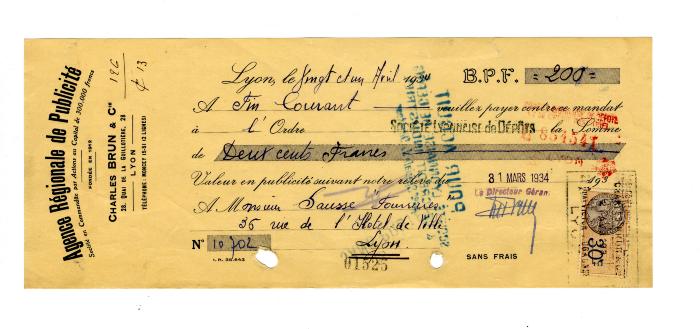 Agence Régionale de Publicité
Société en Commandite par Actions au Capital de 300.000 francs
FONDÉE EN 1919
CHARLES BRUN & Cie
28, QUAI DE LA GUILLOTIÈRE, 28
LYON
TÉLÉPHONE: MONCEY 15-51 (2 LIGNES)
126
13
Lyon, le Vingt et un Avril 1934 B.P.F. = 200 =
A Fin Courant veuillez payer contre ce mandat
à l'Ordre SOCIÉTÉ LYONNAISE DE DÉPÔTS la Somme
de Deux cents Francs
Valeur en publicité suivant notre relevé du 31 MARS 1934 193
Le Directeur Gérant
A Monsieur Sausse Fourrières
36 rue de l'Hôtel de Ville
Lyon
N° 10 702
01525 SANS FRAIS
I.R. 38.643
POUR ACQUIT
LYON
30